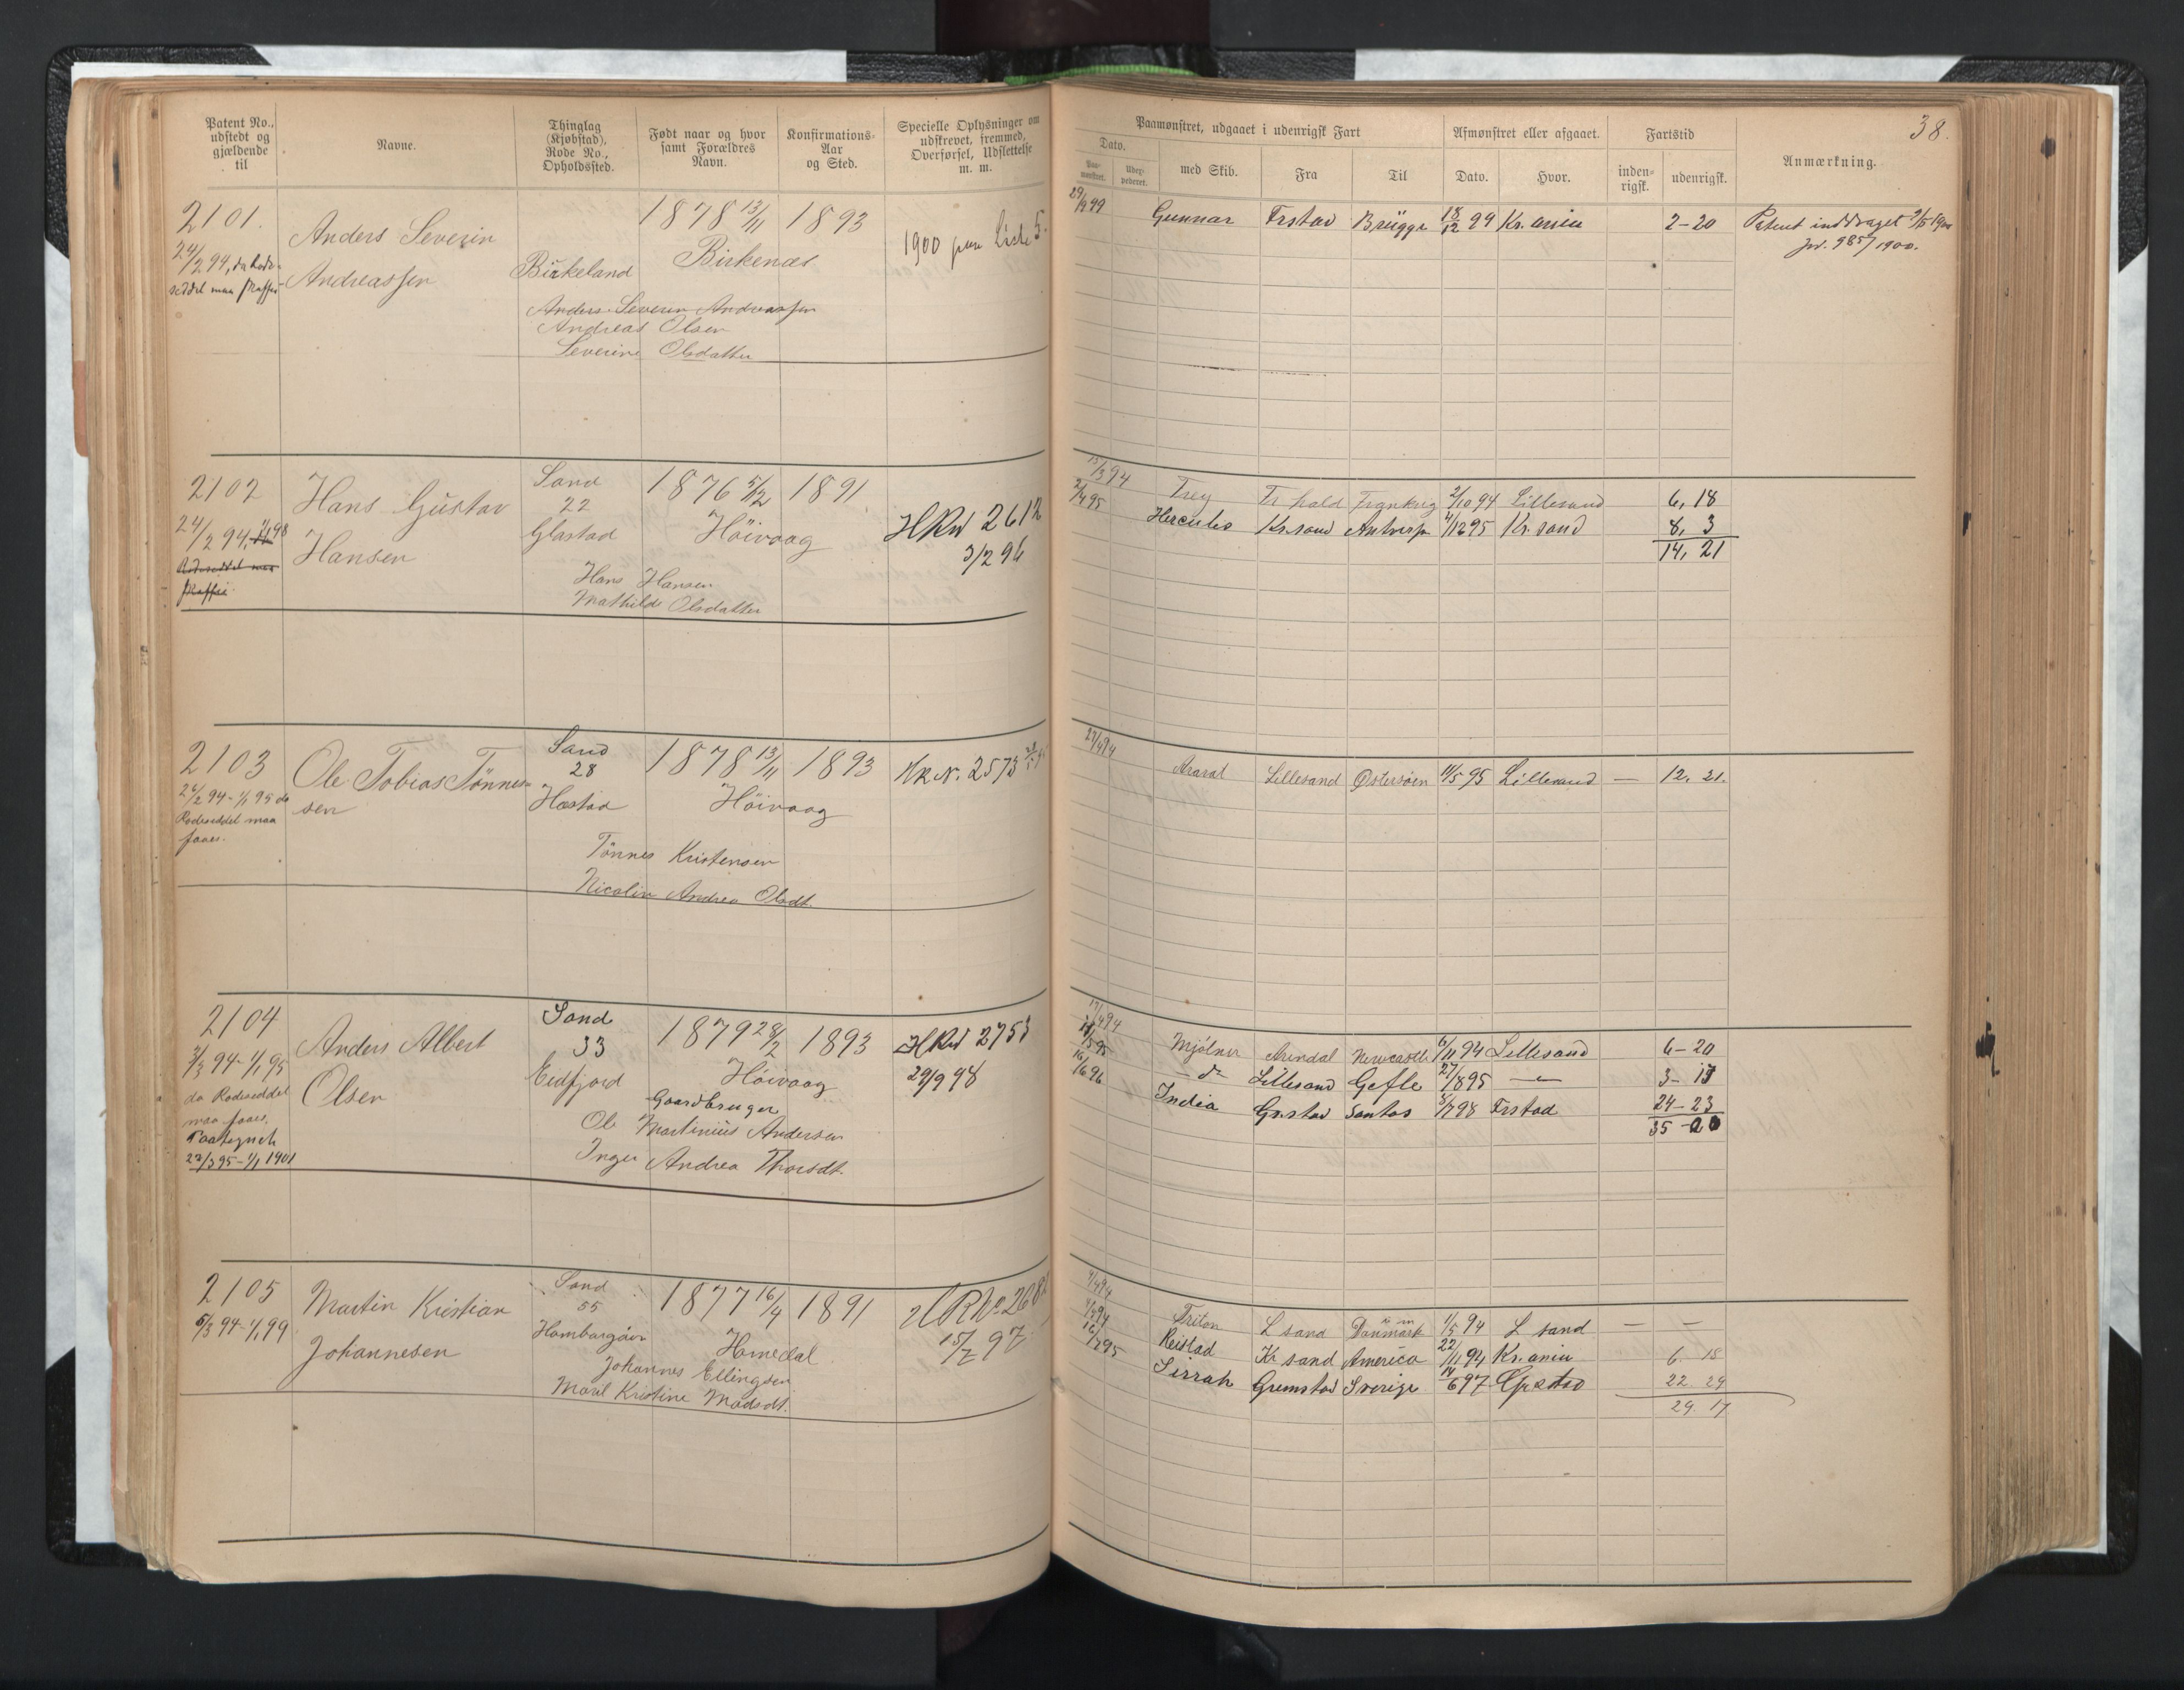 Patent No., udstedt og gjældende til
Navne.
Thinglag (Kjøbstad), Rode No., Opholdssted.
Født naar og hvor samt Forældres Navn.
Konfirmations-Aar og Sted.
Specielle Oplysninger om udskrevet, fremmed, Overførsel, Udslettelse m. m.
Paamønstret, udgaaet i udenrigsk Fart
Afmønstret eller afgaaet.
Fartstid
38.
Dato.
Paa-mønstret.
med Skib.
Fra
Til
Dato.
Hvor.
inden-rigsk.
udenrigsk.
Anmærkning.
2101.
24/2 94, da Rode-
seddel maa skaffes
Anders Severin
Andreassen
Birkeland
1878 13/11
Birkenæs
1893
1900 paa Liste 5.
Anders Severin Andreassen
Andreas Olsen
Severine Olsdatter
29/9 99 Gunnar Frstad Brügge 18/12 99 Kr. ania 2-20
Patent inddraget
jr. 985/1900.
2102
24/2 94
Rodeseddel maa
skaffes
Hans Gustav
Hansen
Sand
22
Glastad
1876 5/2
Høivaag
1891
HRNo 2612
3/2 96
Hans Hansen
Mathilde Olsdatter
15/3 94 Frey Fr. hald Frankrig 2/10 94 Lillesand 6, 18
2/4 95 Hercules Kr.sand Antverp 4/12 95 Kr. sand 8, 3
14, 21
2103
24/2 94 - 1/1 95 da
Rodeseddel maa
faaes.
Ole Tobias Tønnes-
sen
Sand
28
Hæstad
1878 13/11
Høivaag
1893
HRN. 2573
Tønnes Kristensen
Nicoline Andrea Olsdt.
27/4 94 Ararat Lillesand Østersøen 11/5 95 Lillesand — 12. 21.
2104
3/3 94 - 1/1 95
da Rodeseddel
maa faaes.
Paategnet
22/3 95 - 1/1 1901
Anders Albert
Olsen
Sand
33
Eidfjord
1879 28/2
Høivaag
1893
HRNo 2753
29/9 98
Gaardbruger
Ole Martinius Andersen
Inger Andrea Thorsdt.
17/4 94 Mjølner Arendal Newcastle 6/11 94 Lillesand 6-20
11/5 95 — do Lillesand Gefle 27/8 95 — 3-13
16/6 96 India Grstad Santos 8/7 98 Frstad 24-23
35-20
2105
5/3 94 - 1/1 99
Martin Kristian
Johannesen
Sand
55
1877 16/4
Homedal
1891
HRNo 268
15/7 97
Johannes Ellingsen
Maril Kristine Madsdt.
9/4 94 Triton L sand Danmark 1/5 94 L sand — —
Reistad Kr sand America 22/11 94 Kr. ania 6. 18
16/7 95 Sirrah Gremstad Sverige 14/6 97 Grstad 22. 29
29. 17